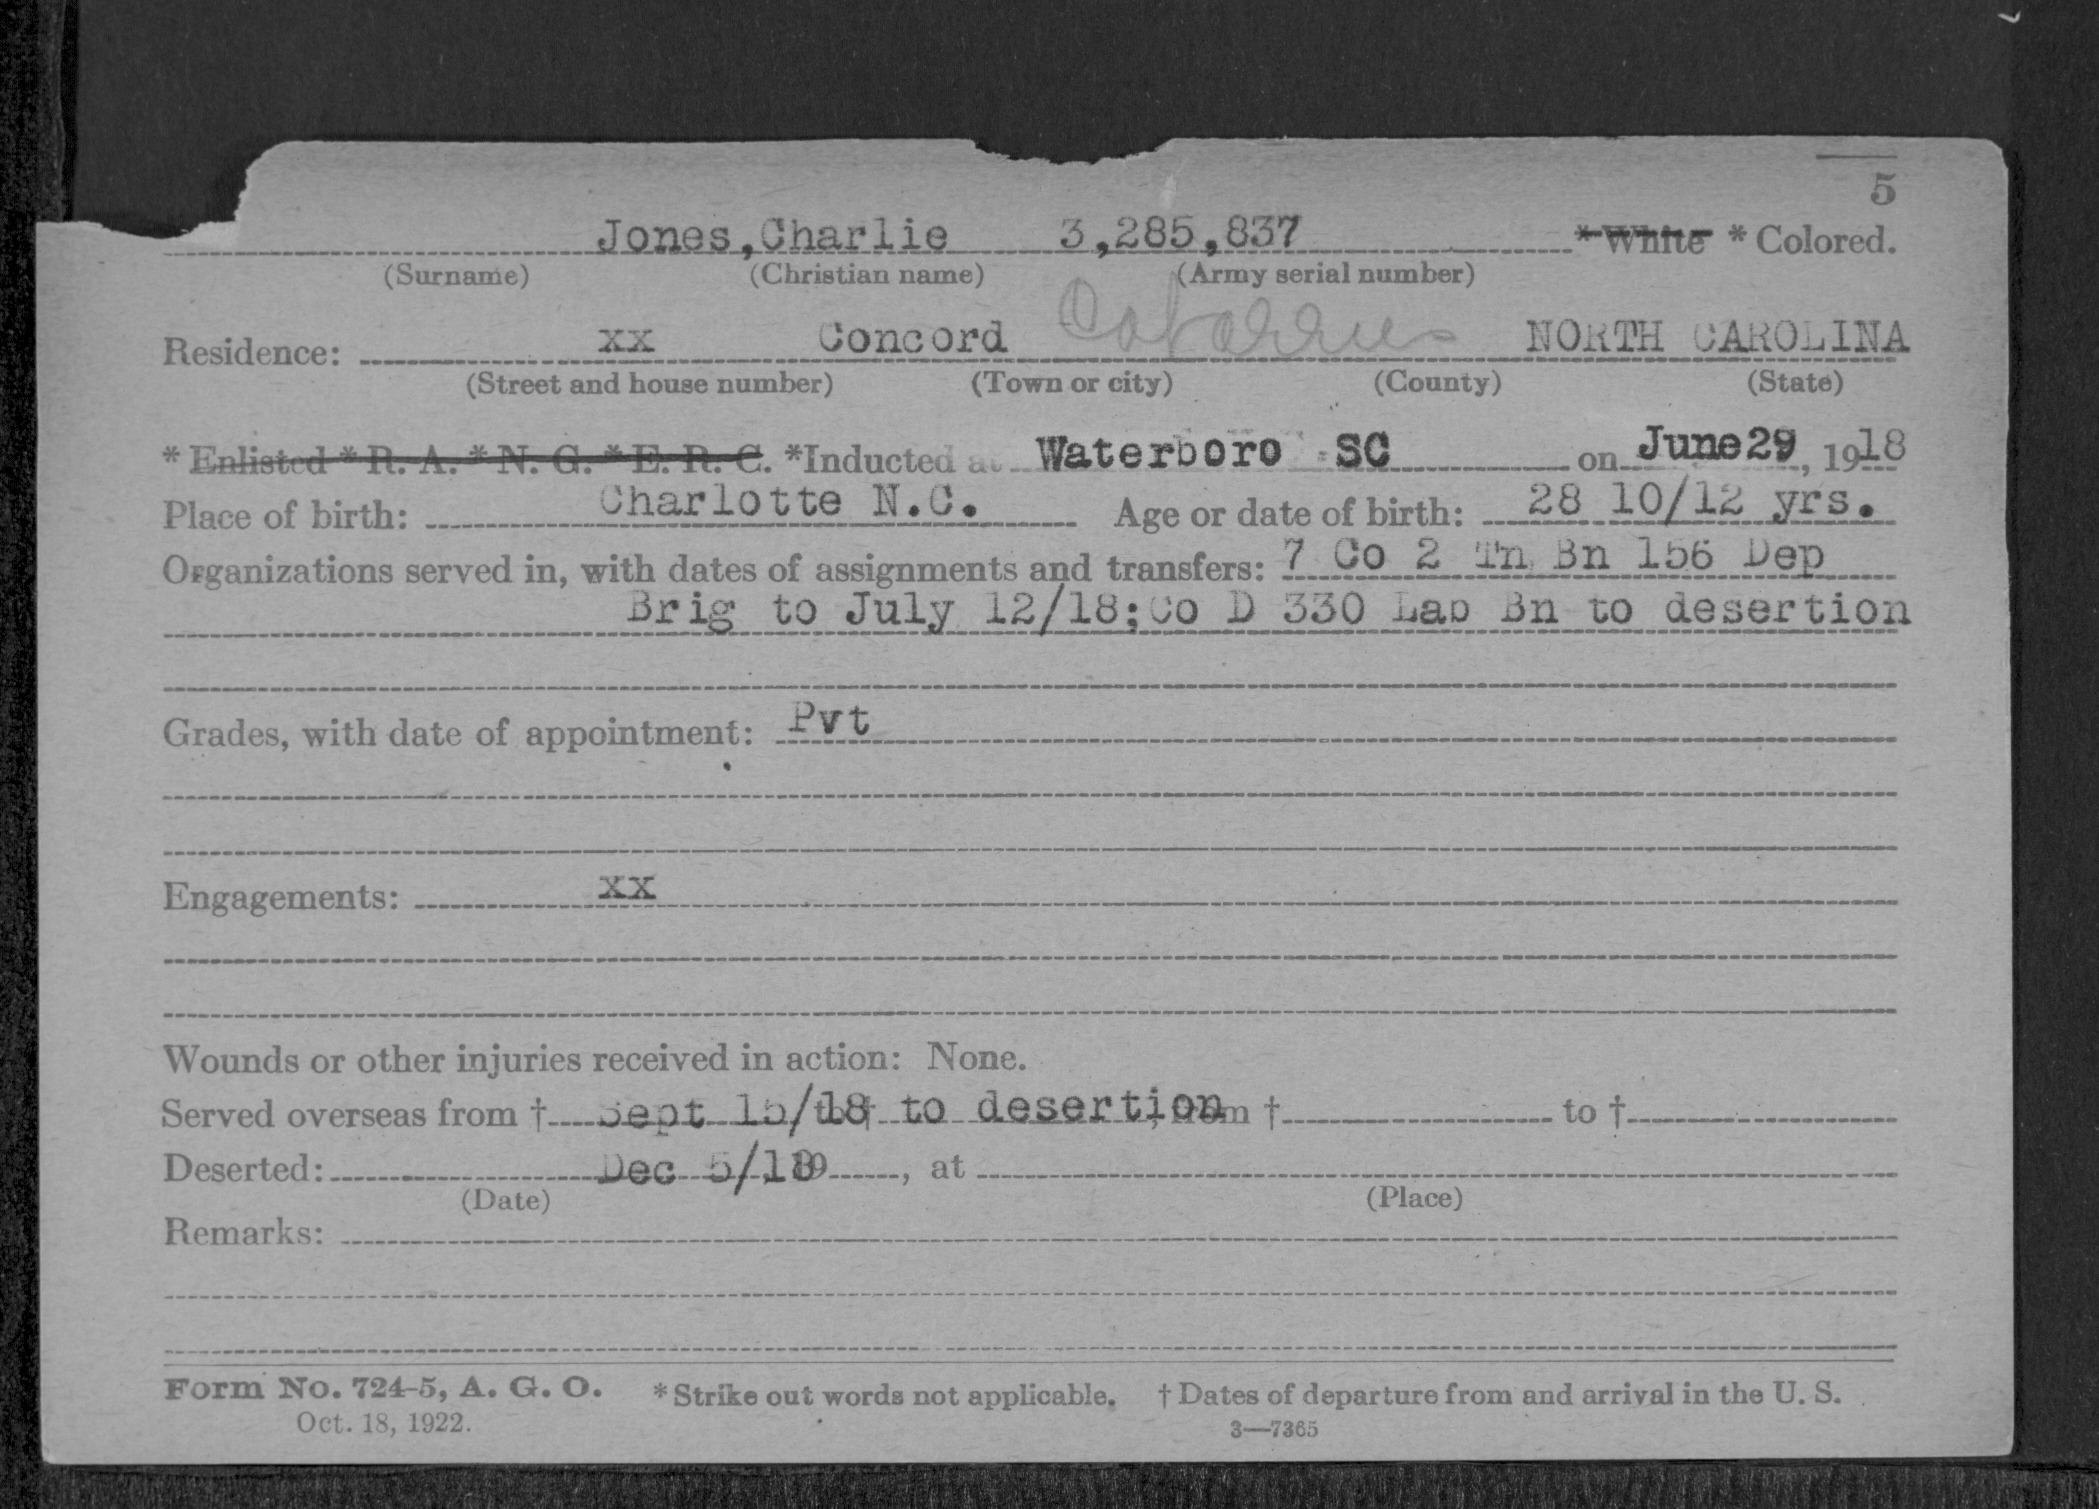 5
Jones,Charlie 3,285,837 * White * Colored.
(Surname) (Christian name) (Army serial number)
Residence: xx Concord Cabarrus NORTH CAROLINA
(Street and house number) (Town or city) (County) (State)
* Enlisted * R. A. * N. G. * E. R. C. *Inducted at Waterboro SC on June29, 1918
Place of birth: Charlotte N.C. Age or date of birth: 28 10/12 yrs.
Organizations served in, with dates of assignments and transfers: 7 Co 2 Tn Bn 156 Dep
Brig to July 12/18;Co D 330 Lab Bn to desertion
Grades, with date of appointment: Pvt
Engagements: xx
Wounds or other injuries received in action: None.
Served overseas from † Sept 15/18 to † to desertion, from † to †
Deserted: Dec 5/18 19 , at
(Date) (Place)
Remarks:
Form No. 724-5, A. G. O. * Strike out words not applicable. † Dates of departure from and arrival in the U. S.
Oct. 18, 1922. 3—7365